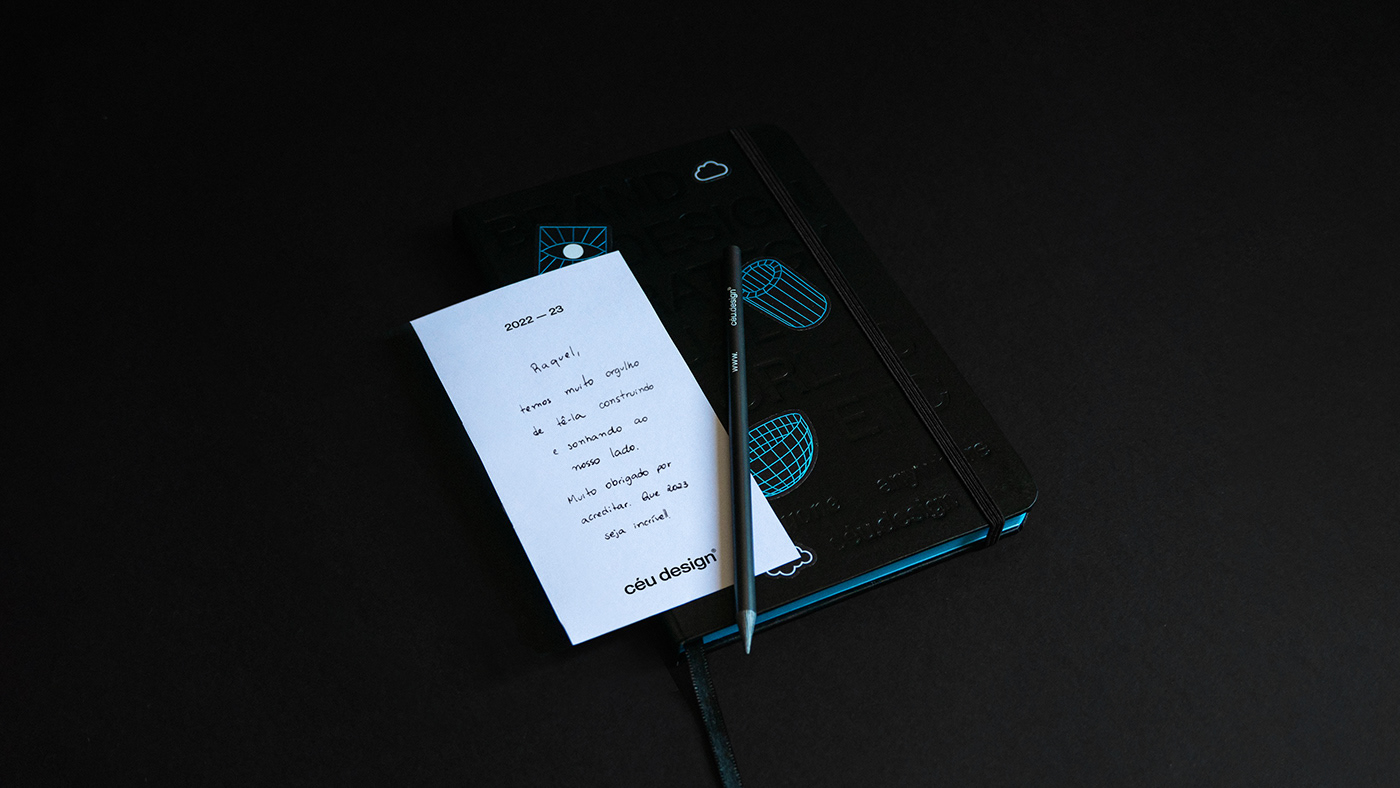 2022 — 23
Raquel,
temos muito orgulho
de tê-la construindo
e sonhando ao
nosso lado.
Muito obrigado por
acreditar. Que 2023
seja incrível!
céu design®
www. céu.design®
BRAND
DESIGN